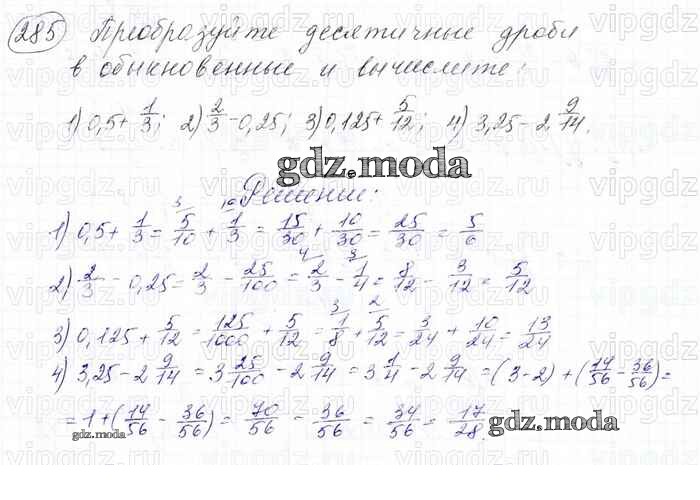 285 Преобразуйте десятичные дроби
в обыкновенные и вычислите:
1) 0,5 + 1/3; 2) 2/3 - 0,25; 3) 0,125 + 5/12; 4) 3,25 - 2 9/14.
gdz.moda
Решение:
1) 0,5 + 1/3 = 5/10 + 1/3 = 15/30 + 10/30 = 25/30 = 5/6
2) 2/3 - 0,25 = 2/3 - 25/100 = 2/3 - 1/4 = 8/12 - 3/12 = 5/12
3) 0,125 + 5/12 = 125/1000 + 5/12 = 1/8 + 5/12 = 3/24 + 10/24 = 13/24
4) 3,25 - 2 9/14 = 3 25/100 - 2 9/14 = 3 1/4 - 2 9/14 = (3-2) + (14/56 - 36/56) =
= 1 + (14/56 - 36/56) = 70/56 - 36/56 = 34/56 = 17/28.
gdz.moda
gdz.moda